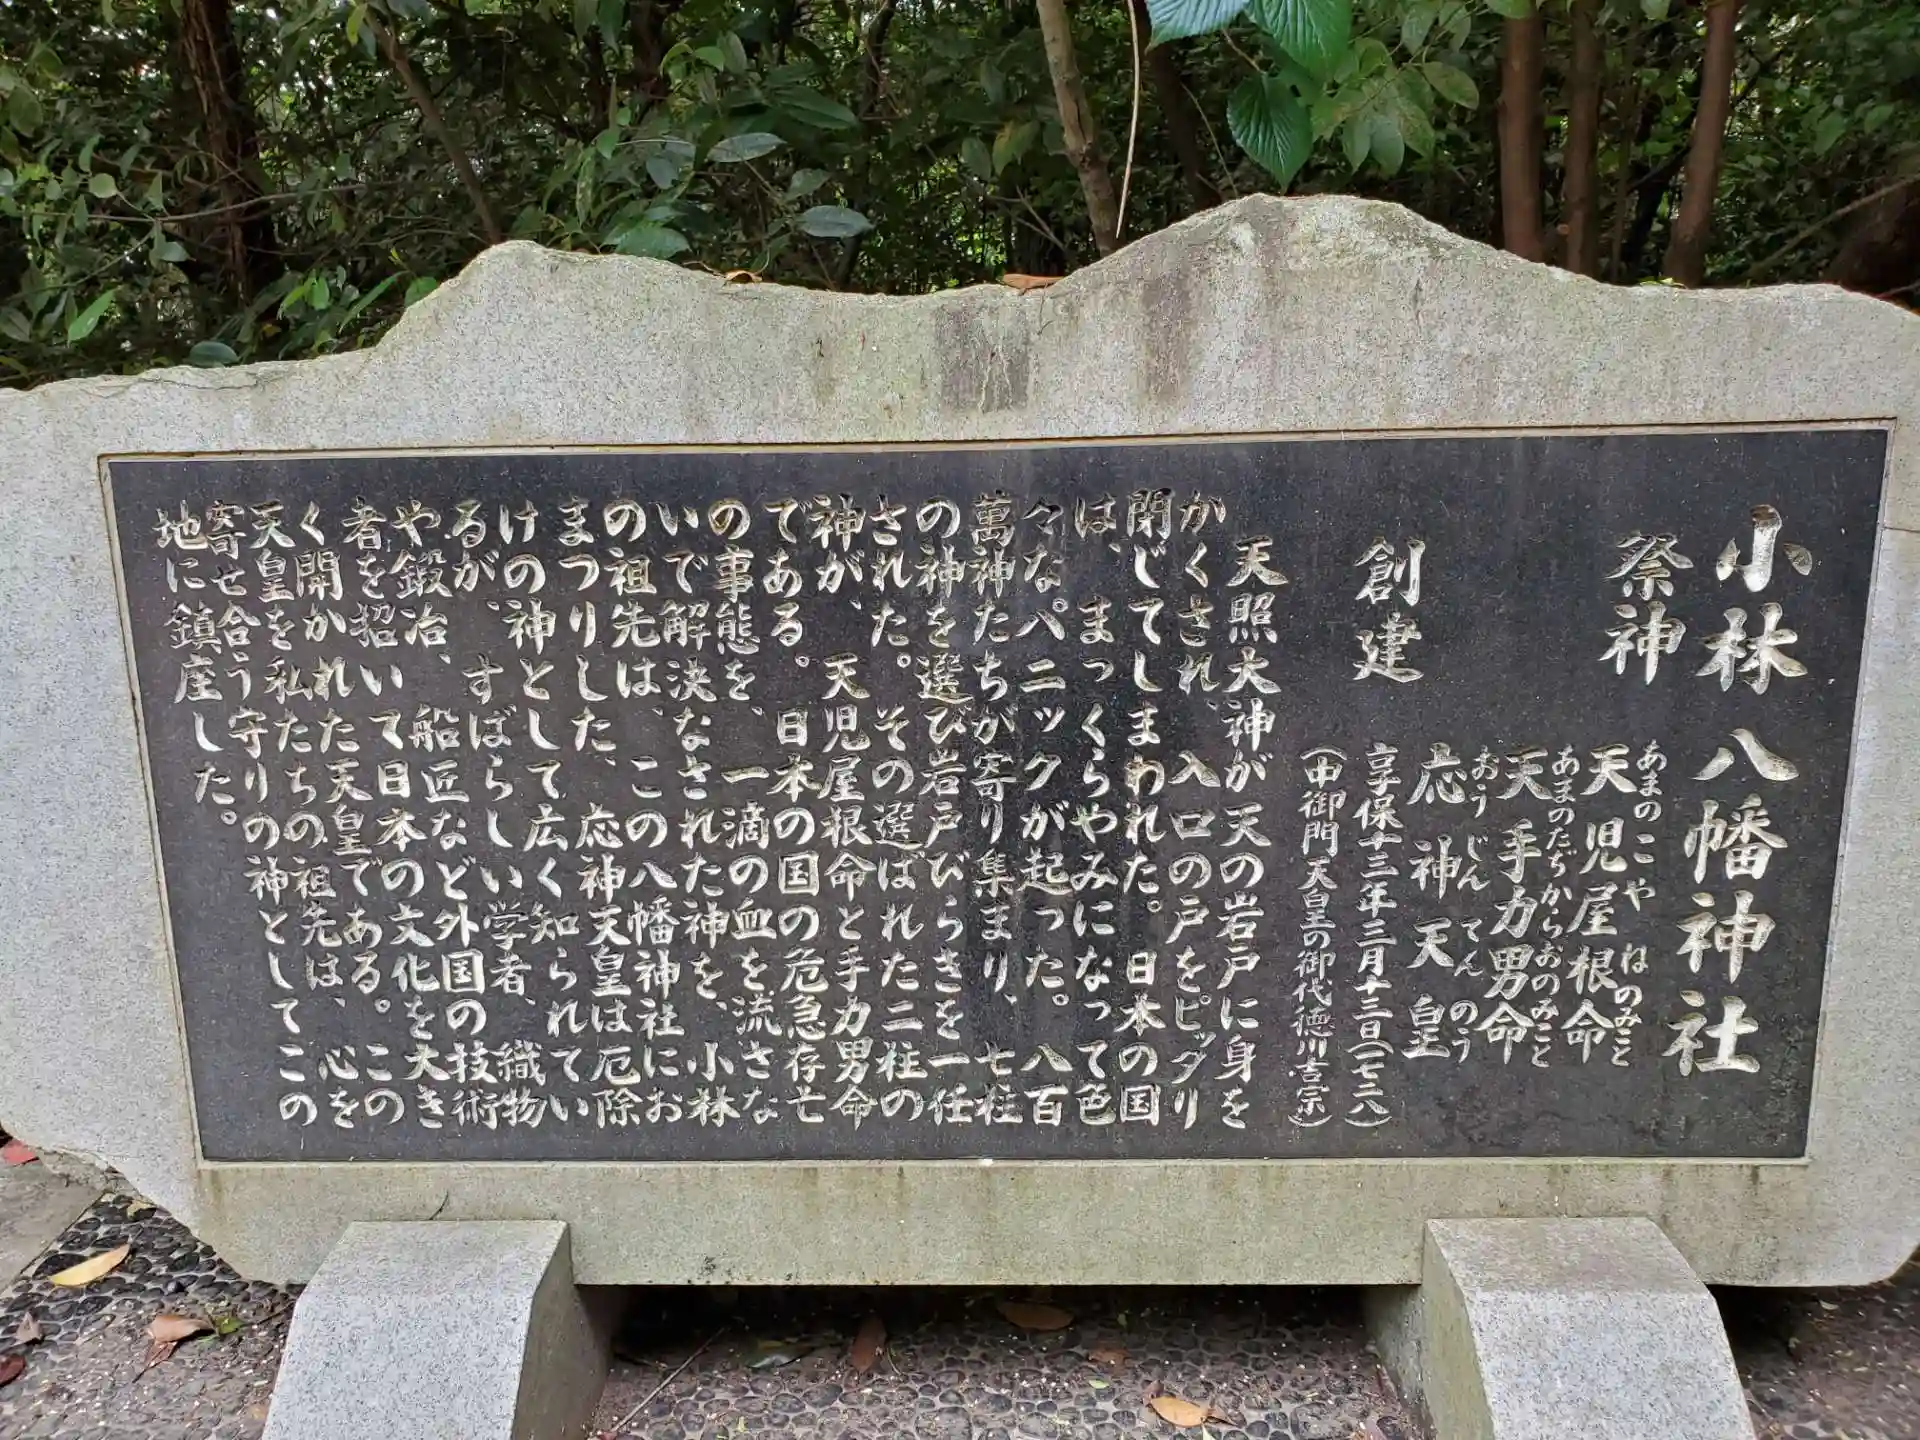 小林八幡神社
祭神
あまのこやねのみこと
天児屋根命
あまのたぢからおのみこと
天手力男命
おうじんてんのう
応神天皇
創建
享保十三年三月十三日(一七二八)
(中御門天皇の御代徳川吉宗)
天照大神が天の岩戸に身を
かくされ、入口の戸をピッタリ
閉じてしまわれた。日本の国
は、まっくらやみになって色
々なパニックが起った。八百
萬神たちが寄り集まり、七柱
の神を選び岩戸びらきを一任
された。その選ばれた二柱の
神が、天児屋根命と手力男命
である。日本の国の危急存亡
の事態を、一滴の血を流さな
いで解決なされた神を、小林
の祖先は、この八幡神社にお
まつりした、応神天皇は厄除
けの神として広く知られてい
るが、すばらしい学者、織物
や鍛冶、船匠など外国の技術
者を招いて日本の文化を大き
く開かれた天皇である。この
天皇を私たちの祖先は、心を
寄せ合う守りの神としてこの
地に鎮座した。